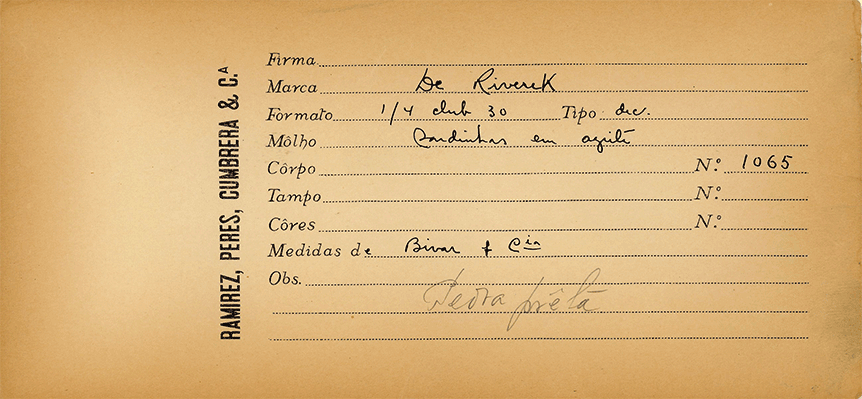 RAMIREZ, PERES, CUMBRERA & C.ᴬ
Firma
Marca De Riverek
Formato 1/4 club 30 Tipo dec.
Môlho Sardinhas em azeite
Côrpo N.º 1065
Tampo N.º
Côres N.º
Medidas de Bivar & Cia
Obs.
Pedra prêta